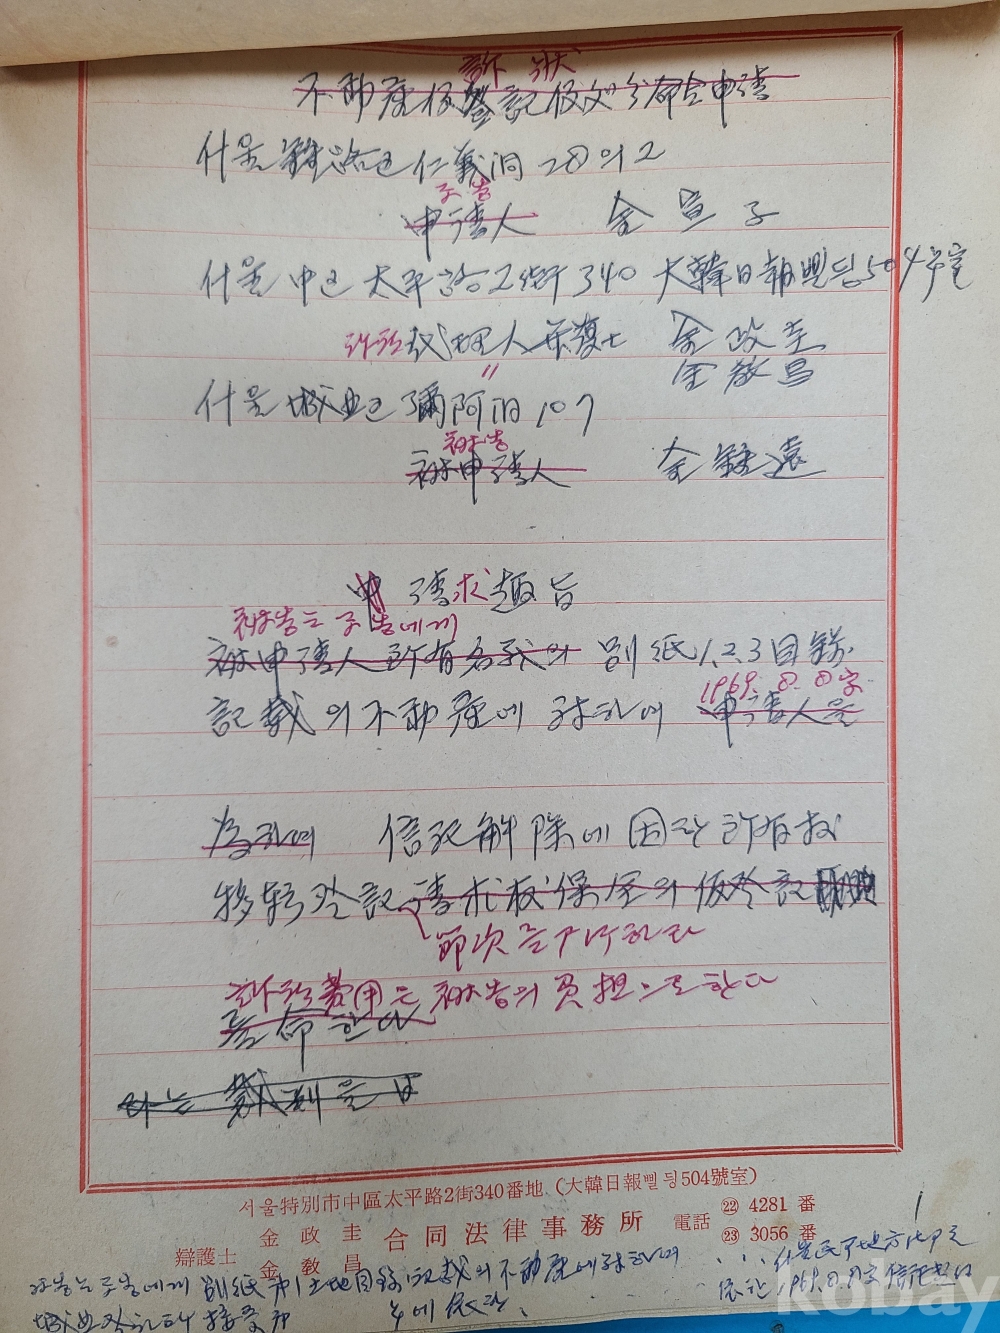 訴狀
不動産假登記假處分命令申請
서울 鍾路區 仁義洞 28의2
原告
申請人 金 宣 子
서울 中區 太平路2街 340 大韓日報삘딩504号室
訴訟代理人 弁護士 金 政 圭
〃 金 敎 昌
서울 城北區 彌阿洞 107
被告
被申請人 金 鍾 遠
申請求趣旨
被告는 原告에게
被申請人 所有名義의 別紙 1, 2, 3 目錄
1969. 8. 8字
記載의 不動産에 対하여 申請人을
為하여 信託解除에 因한 所有权
移転登記請求权保全의 仮登記
節次를 하라
訴訟費用은 被告의 負担으로 한다
를 命한다
라는 裁判을
서울特別市中區太平路2街340番地 (大韓日報삘딩504號室)
辯護士 金政圭 金敎昌 合同法律事務所 電話 ㉒ 4281 番 ㉓ 3056 番
1
被告는 原告에게 別紙 土地目錄 記載의 不動産에 対하여
서울民事地方
1969. 8. 8字
城北 接受
kobay